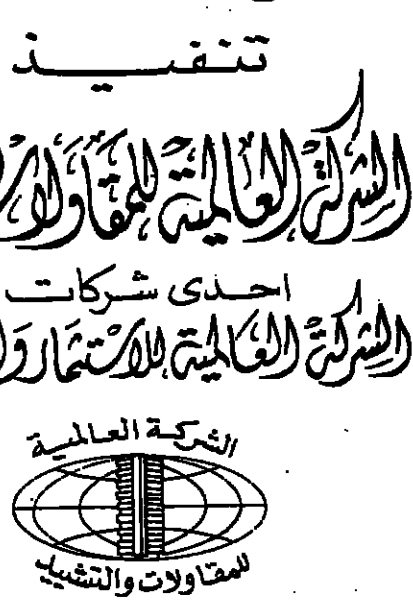 تنفيذ
الشركة العالمية للمقاولات
احدى شركات
الشركة العالمية للاستثمار
الشركة العالمية
للمقاولات والتشييد